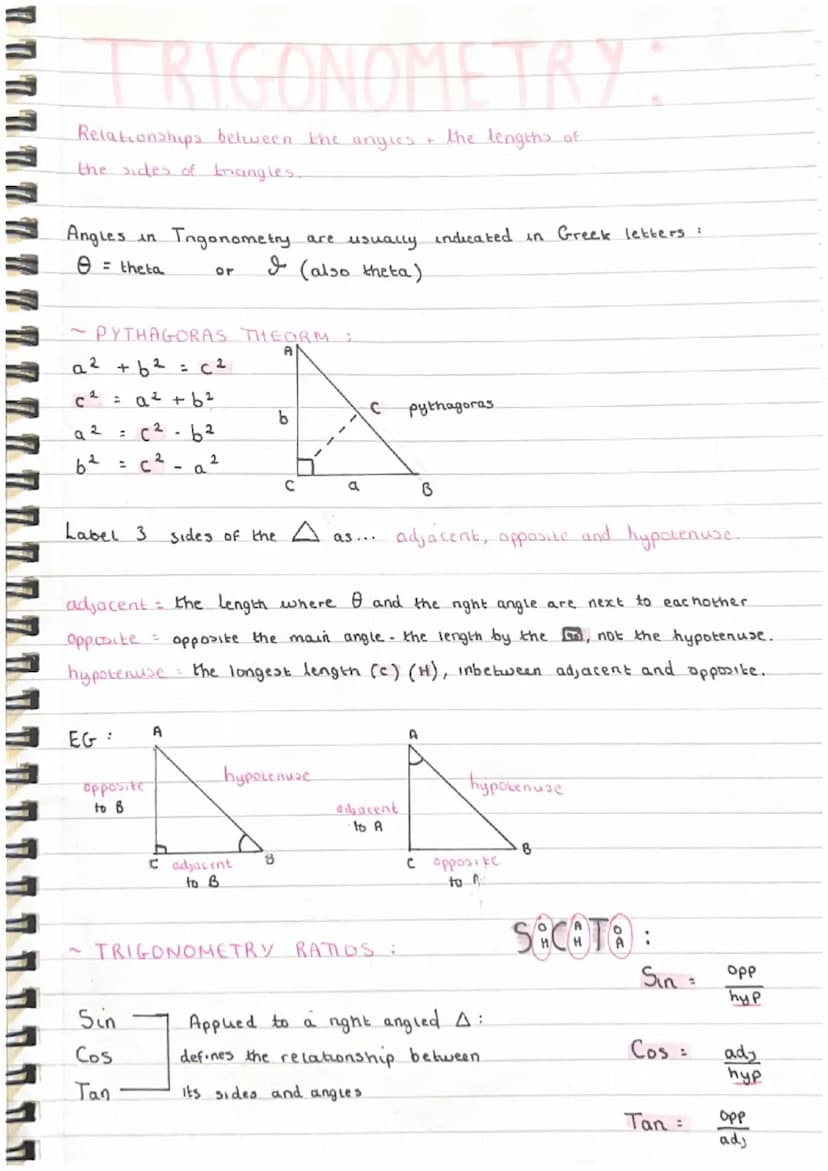 TRIGONOMETRY:
Relationships between the angles + the lengths of
the sides of triangles.
Angles in Trigonometry are usually indicated in Greek letters :
θ = theta or ϑ (also theta)
~ PYTHAGORAS THEORM :
a² + b² = c²
c² = a² + b²
a² = c² - b²
b² = c² - a²
A
b
c pythagoras
C a B
Label 3 sides of the △ as... adjacent, opposite and hypotenuse.
adjacent = the length where θ and the right angle are next to eachother
opposite = opposite the main angle - the length by the , not the hypotenuse.
hypotenuse = the longest length (c) (H), inbetween adjacent and opposite.
EG :
A
opposite
to B
hypotenuse
C adjacent B
to B
A
adjacent
to A
hypotenuse
C opposite B
to A
~ TRIGONOMETRY RATIOS :
SOHCAHTOA :
Sin = opp
hyp
Cos = adj
hyp
Tan = opp
adj
Sin
Cos
Tan
Applied to a right angled △ :
defines the relationship between
its sides and angles